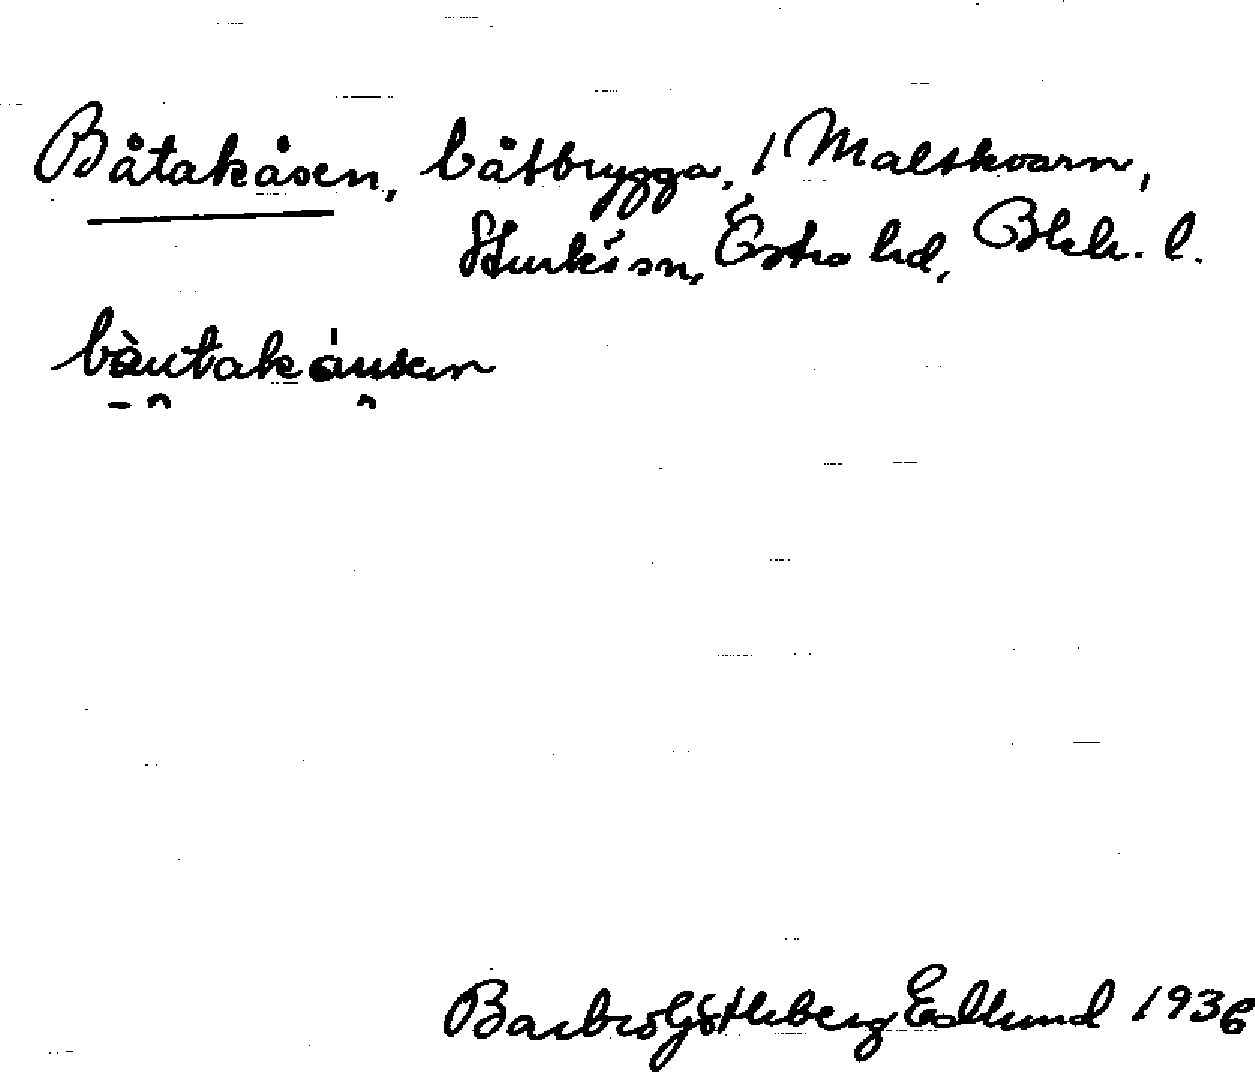 Båtakåsen, båtbrygga, 1 Maltkvarn,
Sturkö sn, Östra hd, Blek. l.
bàutakáusen
Barbro Götleberg Edlund 1936